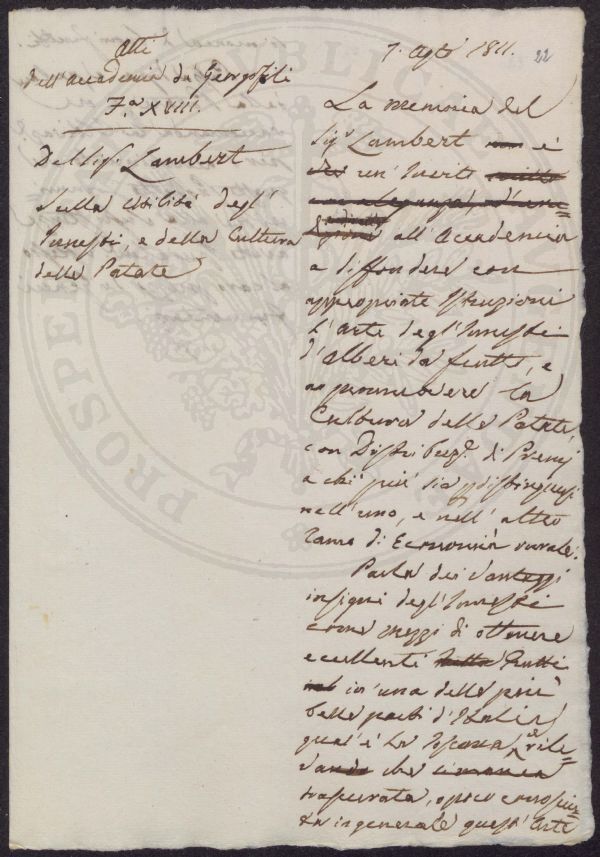 Atti
dell'Accademia de' Georgofili
Fa. XVIII.
Del Sigr. Lambert
Sulla Utilità degl'
Innesti, e della Cultura
delle Patate
7. Agto 1811. 22
La memoria del
Sigr Lambert è
un'
all'Accademia
a diffondere con
appropriate Istruzioni
l'arte degl'Innesti
d'alberi da frutto, e
a promuovere la
Cultura delle Patate,
con Distribuze. di Premj
a chi più sia p distinguersi
nell'uno, e nell'altro
ramo di Economia rurale.
Parla dei vantaggi
insigni degl'Innesti
come mezzi di ottenere
eccellenti frutti
in una delle più
belle parti d'Italia,
qual'è la Toscana, e rile=
va che
trascurata, o poco conosciu=
ta in generale quest'Arte
PROSPER PUBLICAE